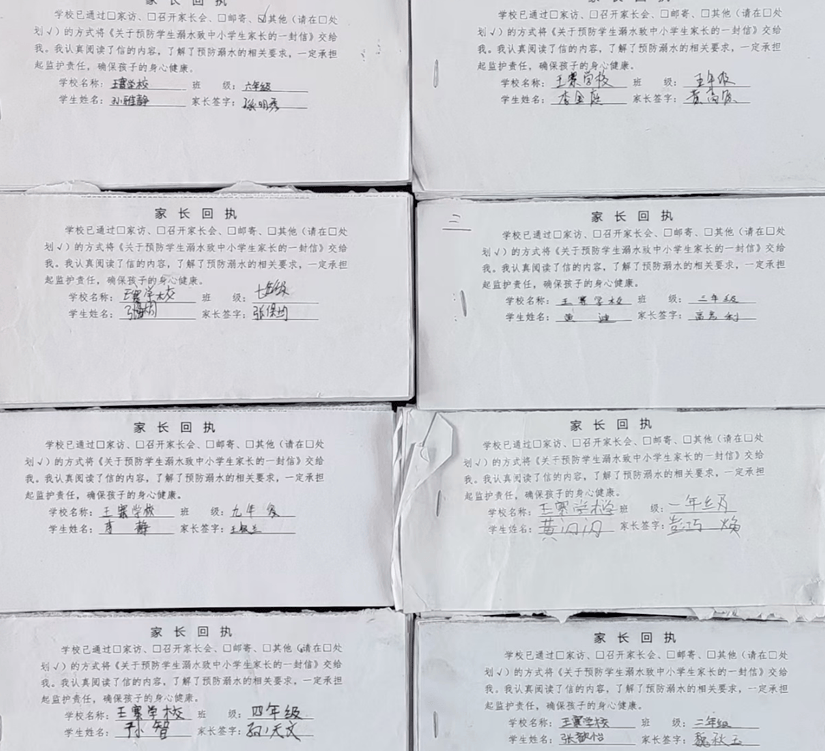 家长回执
学校已通过□家访、□召开家长会、□邮寄、□其他（请在□处
划√）的方式将《关于预防学生溺水致中小学生家长的一封信》交给
我。我认真阅读了信的内容，了解了预防溺水的相关要求，一定承担
起监护责任，确保孩子的身心健康。
学校名称：王寨学校 班 级：六年级
学生姓名：孙雅静 家长签字：
家长回执
学校已通过□家访、□召开家长会、□邮寄、□其他（请在□处
划√）的方式将《关于预防学生溺水致中小学生家长的一封信》交给
我。我认真阅读了信的内容，了解了预防溺水的相关要求，一定承担
起监护责任，确保孩子的身心健康。
学校名称：王寨学校 班 级：五年级
学生姓名： 家长签字：
家长回执
学校已通过□家访、□召开家长会、□邮寄、□其他（请在□处
划√）的方式将《关于预防学生溺水致中小学生家长的一封信》交给
我。我认真阅读了信的内容，了解了预防溺水的相关要求，一定承担
起监护责任，确保孩子的身心健康。
学校名称：王寨学校 班 级：七年级
学生姓名： 家长签字：
二
家长回执
学校已通过□家访、□召开家长会、□邮寄、□其他（请在□处
划√）的方式将《关于预防学生溺水致中小学生家长的一封信》交给
我。我认真阅读了信的内容，了解了预防溺水的相关要求，一定承担
起监护责任，确保孩子的身心健康。
学校名称：王寨学校 班 级：三年级
学生姓名： 家长签字：
家长回执
学校已通过□家访、□召开家长会、□邮寄、□其他（请在□处
划√）的方式将《关于预防学生溺水致中小学生家长的一封信》交给
我。我认真阅读了信的内容，了解了预防溺水的相关要求，一定承担
起监护责任，确保孩子的身心健康。
学校名称：王寨学校 班 级：九年级
学生姓名：李静 家长签字：
家长回执
学校已通过□家访、□召开家长会、□邮寄、□其他（请在□处
划√）的方式将《关于预防学生溺水致中小学生家长的一封信》交给
我。我认真阅读了信的内容，了解了预防溺水的相关要求，一定承担
起监护责任，确保孩子的身心健康。
学校名称：王寨学校 班 级：一年级
学生姓名：黄闪闪 家长签字：彭巧焕
家长回执
学校已通过□家访、□召开家长会、□邮寄、□其他（请在□处
划√）的方式将《关于预防学生溺水致中小学生家长的一封信》交给
我。我认真阅读了信的内容，了解了预防溺水的相关要求，一定承担
起监护责任，确保孩子的身心健康。
学校名称：王寨学校 班 级：四年级
学生姓名：孙智 家长签字：
家长回执
学校已通过□家访、□召开家长会、□邮寄、□其他（请在□处
划√）的方式将《关于预防学生溺水致中小学生家长的一封信》交给
我。我认真阅读了信的内容，了解了预防溺水的相关要求，一定承担
起监护责任，确保孩子的身心健康。
学校名称：王寨学校 班 级：二年级
学生姓名：张歆怡 家长签字：魏秋玉